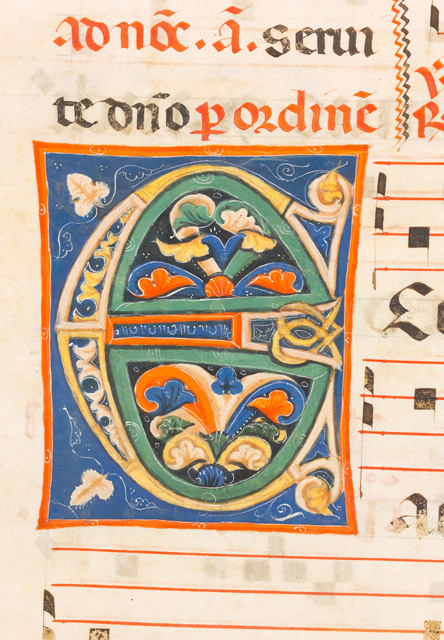 ad noc̄. ā. serui
te dn̄o p ordinē
E